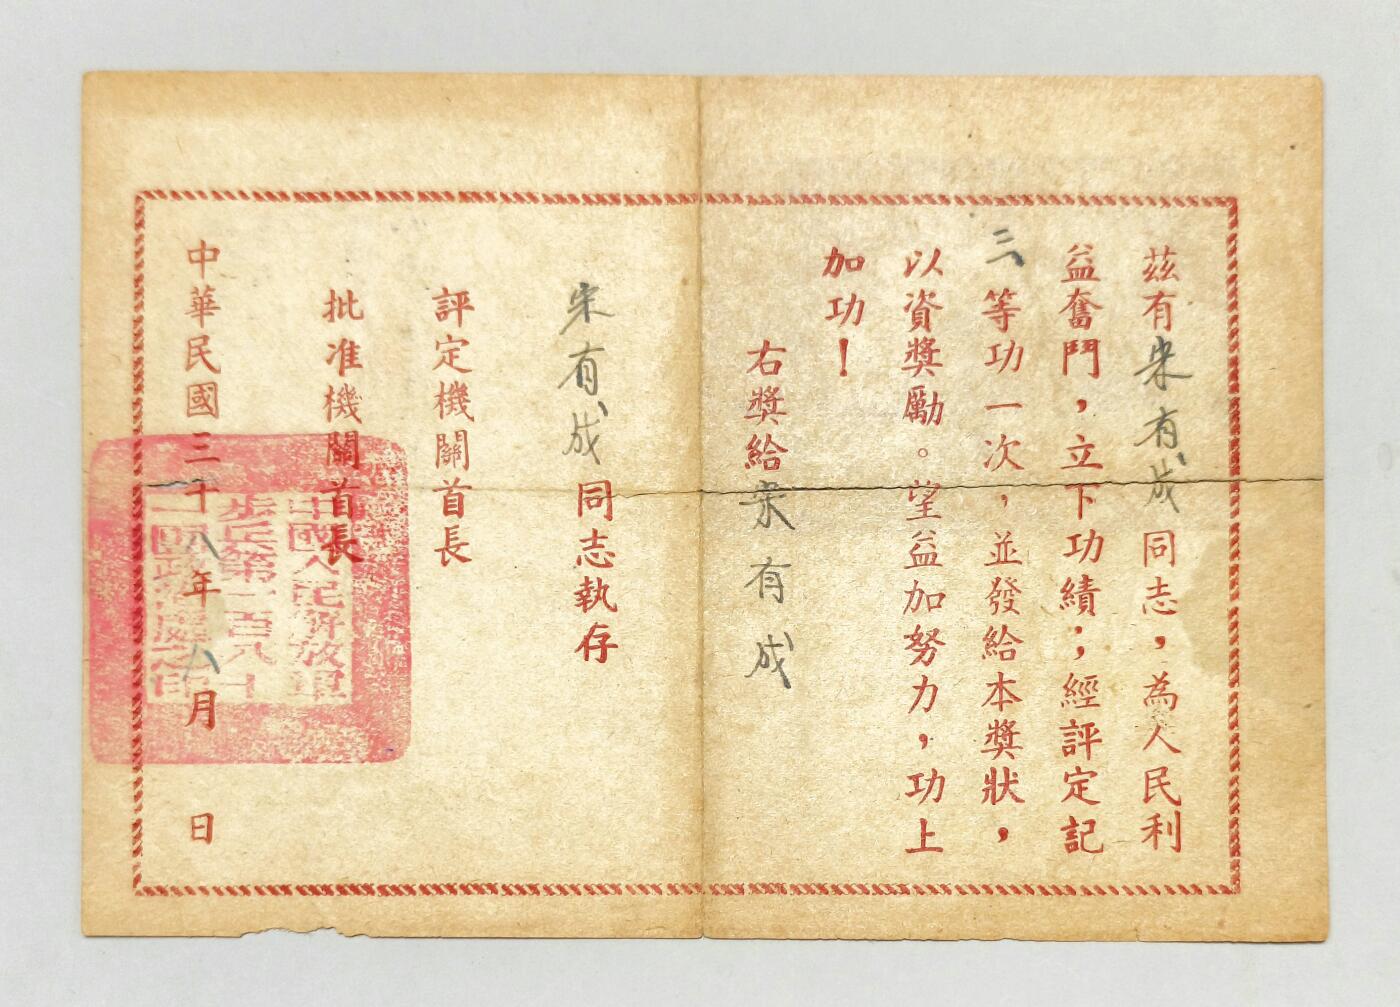 茲有宋有成同志，為人民利
益奮鬥，立下功績；經評定記
三等功一次，並發給本獎狀，
以資獎勵。望益加努力，功上
加功！
右獎給宋有成
宋有成同志執存
評定機關首長
批准機關首長
中華民國三十八年八月　日
中國人民解放軍
步兵第一百八十
師政治處之印